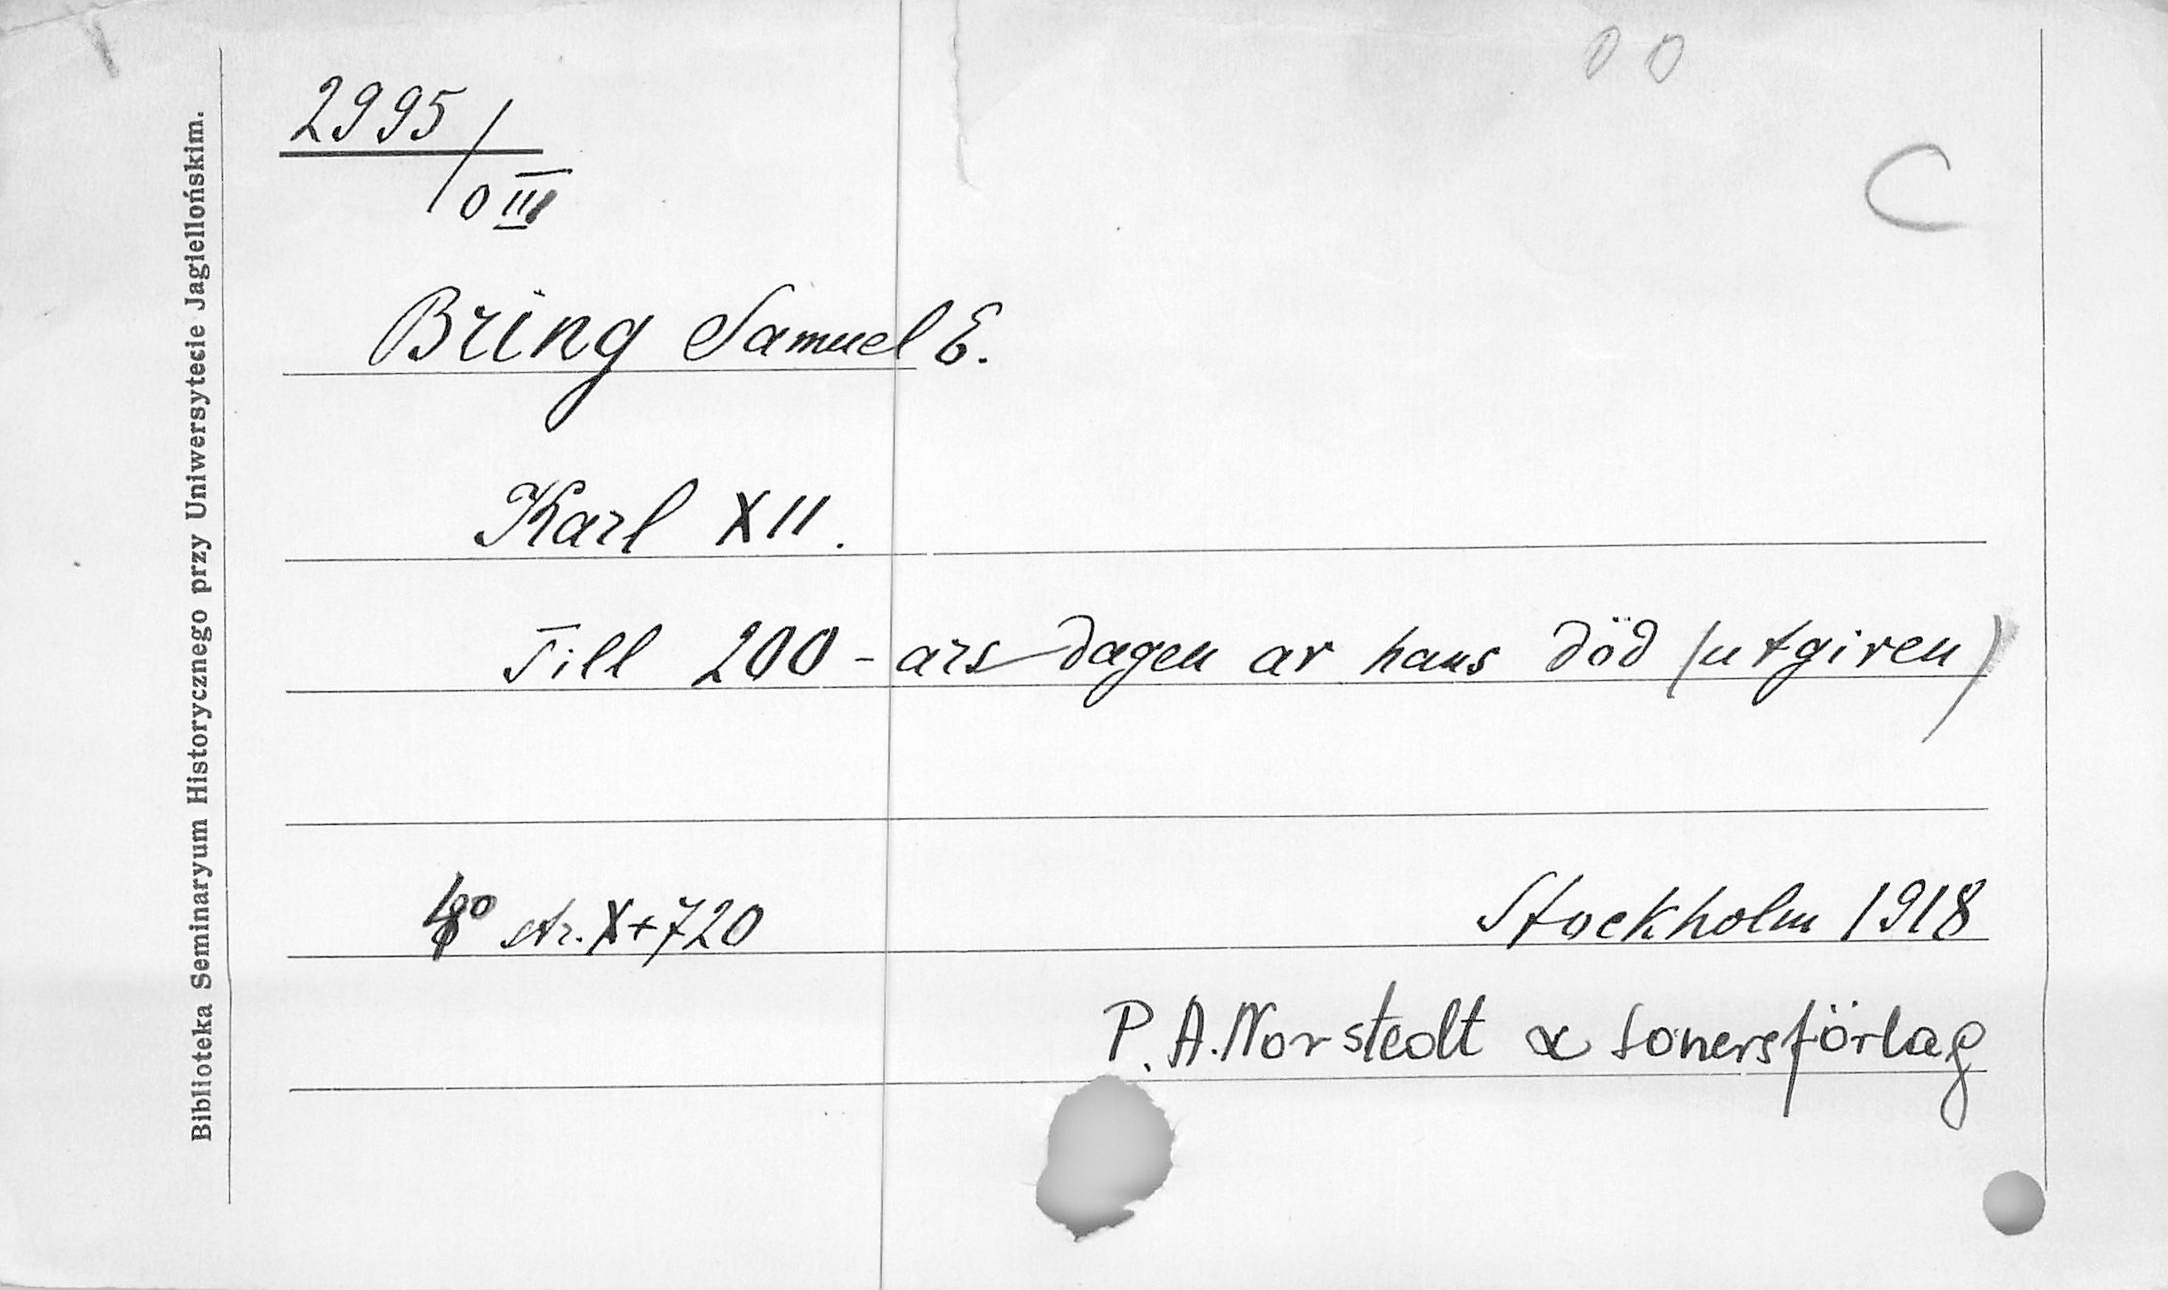 00
C
2995/0 III
Bring Samuel E.
Karl XII.
Till 200-ars dagen av hans död (utgiven)
4o str. X+720
Stockholm 1918
P. A. Norstedt & sonersförlag
Biblioteka Seminaryum Historycznego przy Uniwersytecie Jagiellońskim.